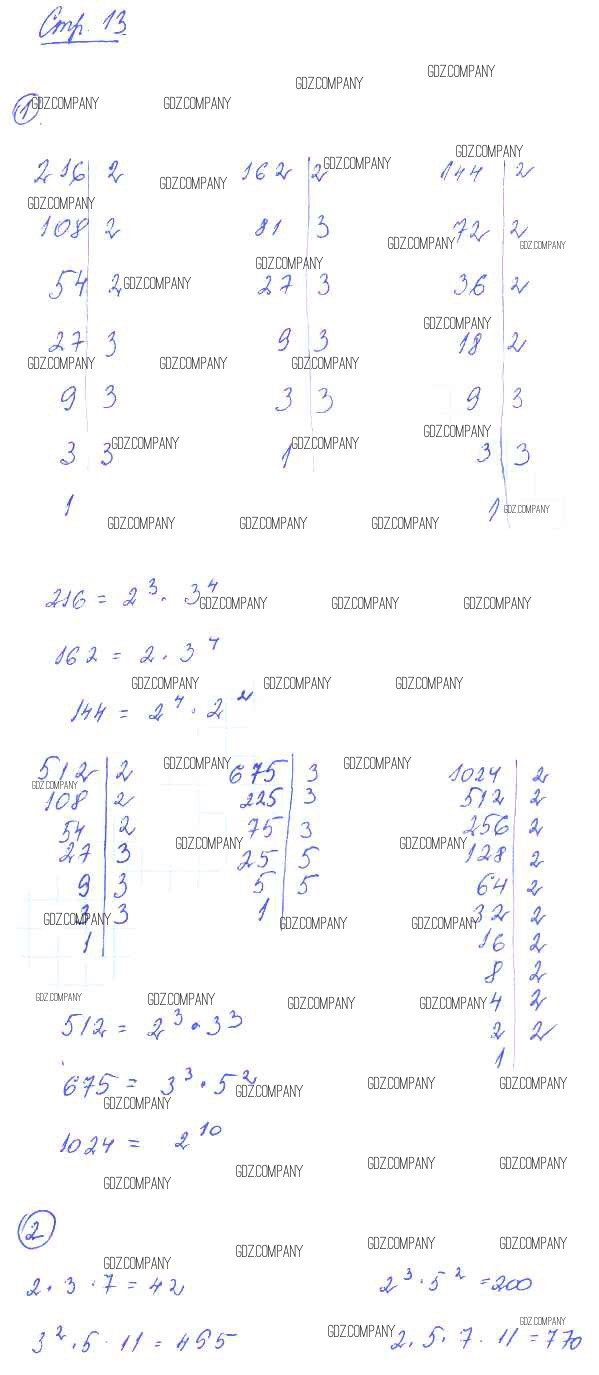 Стр. 13
GDZ.COMPANY
GDZ.COMPANY
1 GDZ.COMPANY GDZ.COMPANY
GDZ.COMPANY
216 2 162 2 GDZ.COMPANY 144 2
GDZ.COMPANY
GDZ.COMPANY
108 2 81 3 72 2
GDZ.COMPANY GDZ.COMPANY
GDZ.COMPANY
54 2 GDZ.COMPANY 27 3 36 2
GDZ.COMPANY
27 3 9 3 18 2
GDZ.COMPANY GDZ.COMPANY GDZ.COMPANY
9 3 3 3 9 3
GDZ.COMPANY
3 3 GDZ.COMPANY 1 GDZ.COMPANY 3 3
1 1 GDZ.COMPANY
GDZ.COMPANY GDZ.COMPANY GDZ.COMPANY
216 = 2³ · 3⁴
GDZ.COMPANY GDZ.COMPANY GDZ.COMPANY
162 = 2 · 3⁴
GDZ.COMPANY GDZ.COMPANY GDZ.COMPANY
144 = 2⁴ · 2²
GDZ.COMPANY GDZ.COMPANY
512 2 675 3 1024 2
GDZ.COMPANY
108 2 225 3 512 2
54 2 75 3 256 2
GDZ.COMPANY GDZ.COMPANY
27 3 25 5 128 2
9 3 5 5 64 2
3 3 1 32 2
GDZ.COMPANY GDZ.COMPANY GDZ.COMPANY
1 16 2
8 2
GDZ.COMPANY GDZ.COMPANY GDZ.COMPANY GDZ.COMPANY 4 2
512 = 2³ · 3³ 2 2
1
675 = 3³ · 5²
GDZ.COMPANY GDZ.COMPANY GDZ.COMPANY GDZ.COMPANY
1024 = 2¹⁰
GDZ.COMPANY GDZ.COMPANY GDZ.COMPANY GDZ.COMPANY
2
GDZ.COMPANY GDZ.COMPANY GDZ.COMPANY GDZ.COMPANY
2 · 3 · 7 = 42 2³ · 5² = 200
GDZ.COMPANY GDZ.COMPANY
3² · 5 · 11 = 495 2 · 5 · 7 · 11 = 770